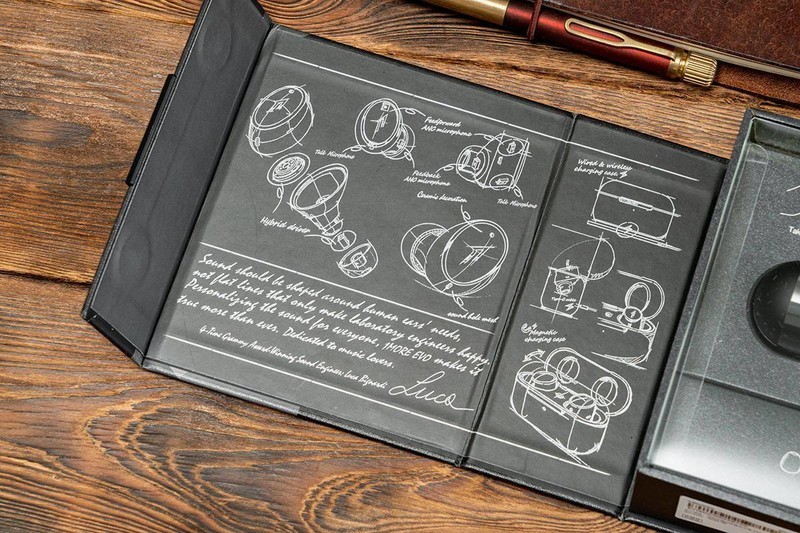 Talk Microphone
Feedforward
ANC microphone
Feedback
ANC microphone
Talk Microphone
Hybrid driver
Ceramic decoration
sound hole mesh
Sound should be shaped around human ears' needs,
not flat lines that only make laboratory engineers happy.
Personalizing the sound for everyone, 1MORE EVO makes it
true more than ever. Dedicated to music lovers.
4-Time Grammy Award-Winning Sound Engineer Luca Bignardi
Luca
Wired & wireless
charging case
Magnetic
charging case